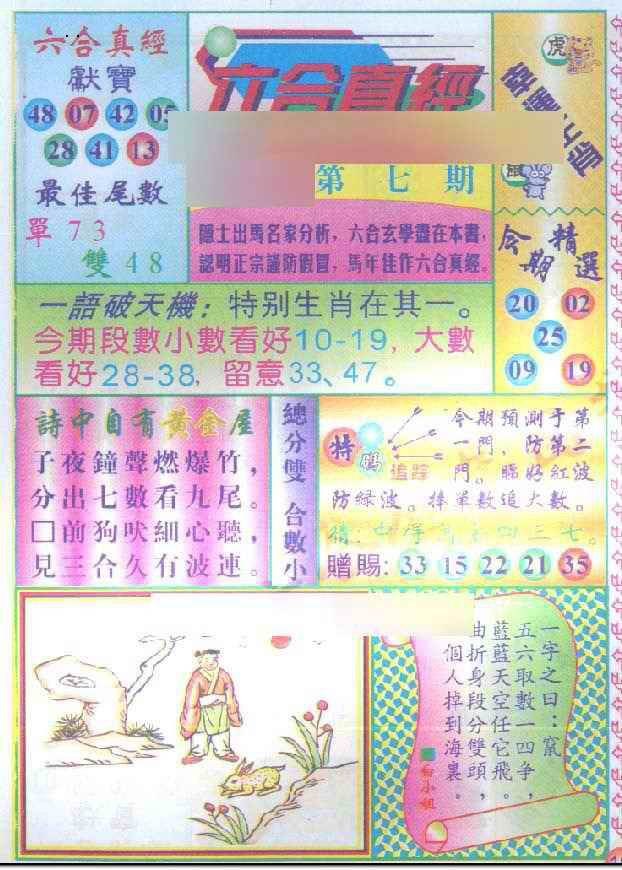 六合真經
獻寶
48 07 42 05
28 41 13
最佳尾數
單 73
雙 48
六合真經
第七期
隱士出馬名家分析，六合玄學盡在本書，
認明正宗謹防假冒，馬年佳作六合真經。
虎
鼠
今期精選
20 02
25
09 19
一語破天機：特别生肖在其一。
今期段數小數看好10-19，大數
看好28-38，留意33、47。
詩中自有黃金屋
子夜鐘聲燃爆竹，
分出七數看九尾。
□前狗吠細心聽，
見三合久有波連。
總分雙 合數小
特碼
追踪
今期預測于第
一門，防第二
門。睇好紅波
防緑波。捧單數追大數。
四三七。
贈賜：33 15 22 21 35
一字之曰：竄
五六取數一四争，
藍藍天空任它飛。
曲折身段分雙頭，
個人掉到海裏。
白小姐